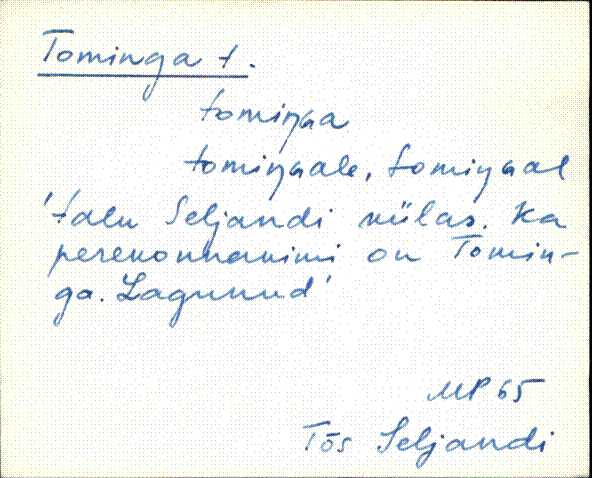 Tominga t.
tomiŋɢa
tomiŋɢale, tomiŋɢal
'talu Seljandi külas. Ka
perekonnanimi on Tomin-
ga. Lagunud'
MP 65
Tõs Seljandi